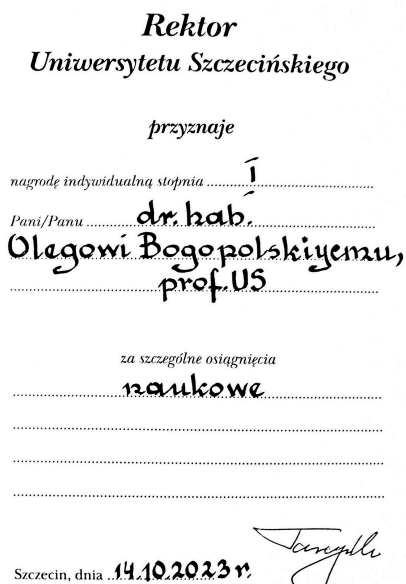 Rektor
Uniwersytetu Szczecińskiego
przyznaje
nagrodę indywidualną stopnia I
Pani/Panu dr. hab.
Olegowi Bogopolskiyemu,
prof. US
za szczególne osiągnięcia
naukowe
Szczecin, dnia 14.10.2023 r.